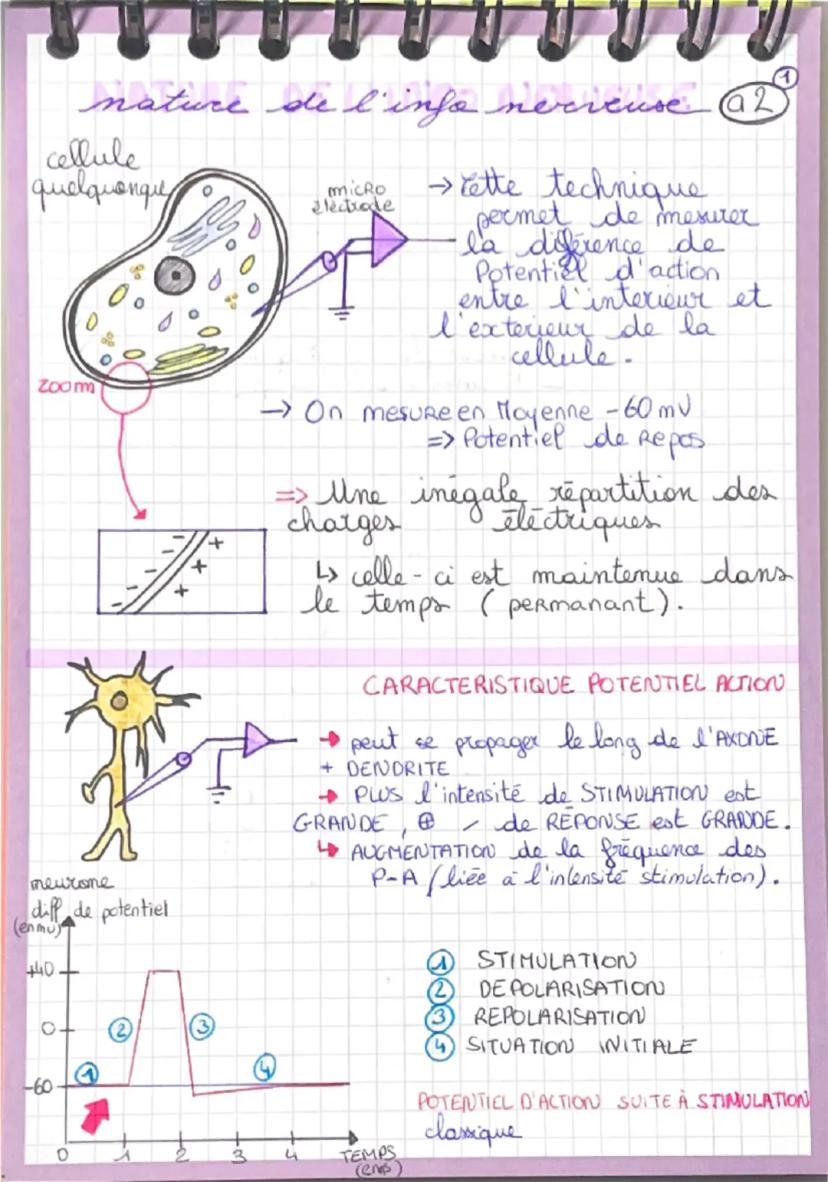 nature de l'info nerveuse a2 1
cellule
quelquonque
micro
électrode
→ cette technique
permet de mesurer
la diférence de
Potentiel d'action
entre l'interieur et
l'exterieur de la
cellule.
zoom
→ On mesure en Moyenne -60 mV
=> Potentiel de Repos
=> Une inégale répartition des
charges électriques
↳ celle-ci est maintenue dans
le temps (permanant).
CARACTERISTIQUE POTENTIEL ACTION
→ peut se propager le long de l'AXONE
+ DENDRITE
→ PLUS l'intensité de STIMULATION est
GRANDE, ⊕ / de RÉPONSE est GRANDE.
↳ AUGMENTATION de la fréquence des
P-A (liée à l'intensité stimulation).
neurone
diff de potentiel
(en mv)
+40
0
-60
1
2
3
4
0 1 2 3 4 TEMPS
(en ms)
1 STIMULATION
2 DEPOLARISATION
3 REPOLARISATION
4 SITUATION INITIALE
POTENTIEL D'ACTION SUITE À STIMULATION
classique